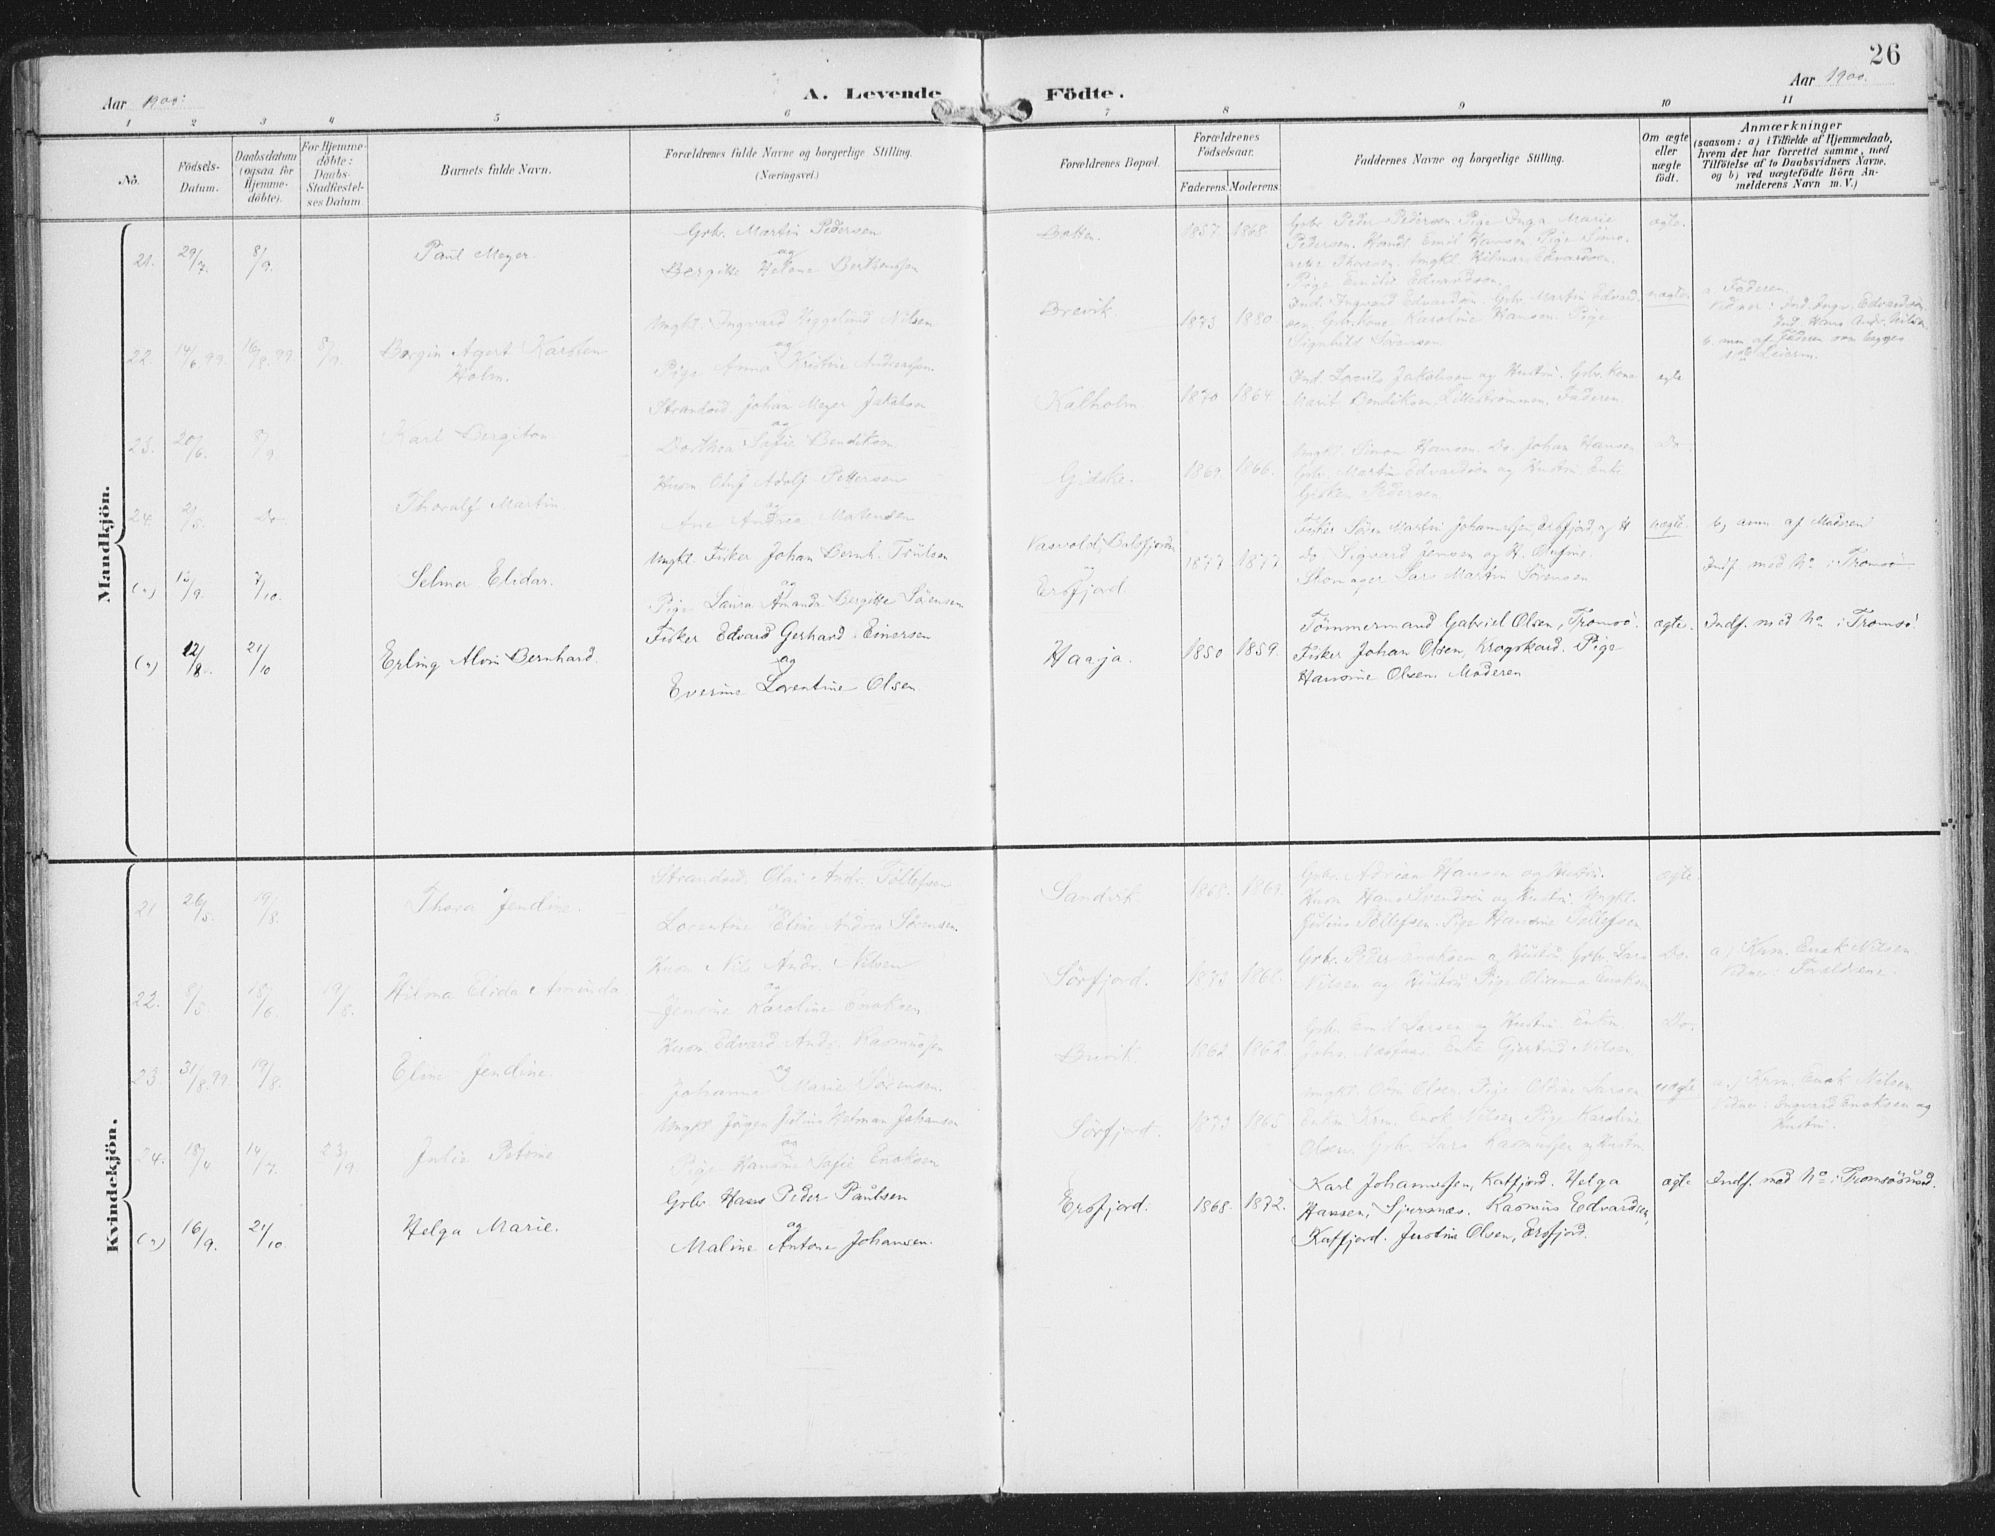 26
Aar 1900.
A. Levende Födte.
Aar 1900.
1 2 3 4 5 6 7 8 9 10 11
No.
Födsels-Datum.
Daabsdatum (ogsaa for Hjemme-döbte).
For Hjemme-döbte: Daabs-Stadfæstel-ses Datum.
Barnets fulde Navn.
Forældrenes fulde Navne og borgerlige Stilling.
(Næringsvei.)
Forældrenes Bopæl.
Forældrenes Födselsaar.
Faderens. Moderens.
Faddernes Navne og borgerlige Stilling.
Om ægte eller uægte födt.
Anmærkninger
(saasom: a) i Tilfælde af Hjemmedaab,
hvem der har forrettet samme, med
Tilföielse af to Daabsvidners Navne,
og b) ved uægtefödte Börn An-
melderens Navn m. V.)
Mandkjön.
21. 29/7. 8/9. Paul Meyer.
Gbr. Martin Pedersen
og
Bergitte Helene Berthe
Batten. 1857. 1868.
Gbr. Peder Pedersen. Pige Inga Marie
Pedersen. Handl. Emil Hansen. Pige
Thoresen. Ungkl. Hilmar Edvardsen.
Pige Emilie Edvardsen.
ægte.
22. 14/6 99. 16/8. 99. 8/9. Agert Karsten
Holm.
Ungkl. Ingvard Nilsen
og
Pige Anna Kristine Andreassen.
Brevik. 1873 1880
Ind. Ingvard Edvardsen. Gbr. Martin Edvard-
sen. Gbr.kone Karoline Hansen. Pige
Signhild Sørensen.
uægte
a. Faderen.
Vidner: Ind. Ingv. Edvardsen
Ind. Hans Andr. Nilsen
b. af Faderen som begges
1ste Leierm.
23. 20/6. 8/9 Karl Bergiton
Strandsid. Johan Meyer Jakobsen
og
Dorthea Sofie Bendiksen
Kalholm 1870 1864
Ind. Jakobsen og Hustru. Gbr. kone
Marit Bendiksen, Lillestrømmen. Faderen.
ægte
24. 21/5. Do Thoralf Martin
Husm. Oluf Adolf Pettersen
og
Ane Andrea
Gjidske. 1869. 1866.
Ungkl. Simon Hansen. Do. Johan Hansen
Gbr. Martin Edvardsen og Hustru. Enke
Pedersen.
Do.
(n) 12/9. 7/10. Selmer Elidar.
Ungkl. Fisker Johan Bernh. Trulsen
og
Pige Laura Amanda Bergitte Sørensen
Vasvold, Balsfjorden
og
Ersfjord 1877 1877
Fisker Søren Martin Johannesen, Ersfjord og H
Do. Sigvard Jensen og H. Olufine
Skomager Lars Martin Sørensen
uægte.
b, anm. af Moderen
Indf. med No i Tromsø
(n) 12/8. 21/10 Erling Alvin Bernhard.
Fisker Edvard Gerhard Einersen
og
Everine Lorentine Olsen
Haaja. 1850 1859.
Tømmermand Gabriel Olsen, Tromsø.
Fisker Johan Olsen, Krogskard. Pige
Hansine Olsen. Moderen
ægte.
Indf. med No i Tromsø.
Kvindekjön.
21 26/5. 19/8. Thora Jendine.
Strandsid. Olai Andr. Tollefsen
og
Lorentine Eline Andrea Sørensen.
Sandvik. 1868. 1869.
Gbr. Adrian Hansen og Hustru.
Husm. Hans Svendsen og Hustru. Ungkl.
Tollefsen. Pige Hansine Tollefsen
ægte
22. 8/5. 18/6. 19/8. Hilma Elida Amanda.
Husm. Nils Andr. Nilsen
og
Jensine Karoline Enoksen
Sörfjord. 1873 1868.
Gbr. Peder Enoksen og Hustru. Gbr. Lars
Nilsen og Hustru. Pige Olianna Enoksen
Do.
a, Krm. Enok Nilsen
Vidner: Forældrene.
23. 31/8. 99. 19/8. Eline Jendine.
Husm. Edvard Andr. Rasmussen
og
Johanna Marie Sørensen.
1862 1862.
Gbr. Emil Larsen og Hustru. Enkem.
Enke Gjertrud Nilsen.
Do.
24. 18/4. 14/7. 23/9. Julie Petrine
Ungkl. Jörgen Julius Hetman Johansen
og
Pige Hansine Sofie Enoksen
Sörfjord. 1873 1865
Ungkl. Olsen. Pige Oldine Larsen
Enkm. Krm. Enok Nilsen. Pige Karoline
Olsen. Gbr. Lars Rasmussen og Hustru
uægte
a, Krm. Enok Nilsen.
Vidner: Ingvard Enoksen og
Hustru.
(n) 16/9. 21/10. Helga Marie.
Gbr Hans Peder Paulsen
og
Maline Antone Johansen.
Ersfjord. 1868. 1872.
Karl Johannessen, Katfjord. Helga
Hansen, Sjursnæs. Rasmus Edvardsen,
Katfjord. Justine Olsen, Ersfjord.
ægte
Indf. med No i Tromsøsund.